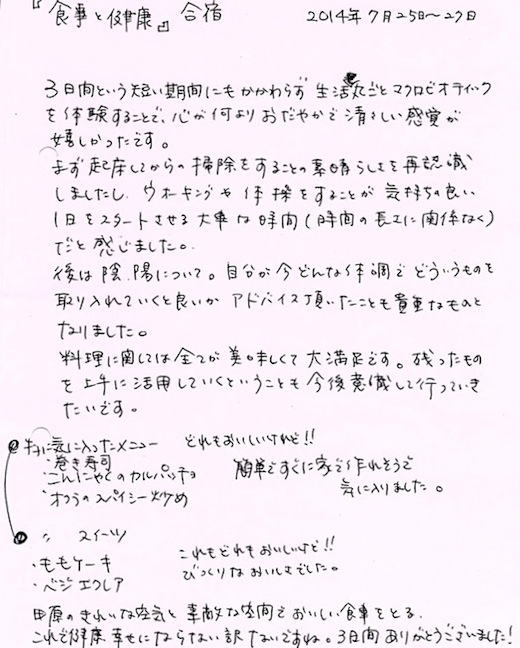 『食事と健康』合宿 2014年7月25日〜27日
3日間という短い期間にもかかわらず 生活丸ごとマクロビオティック
を体験することで、心が何よりおだやかで清々しい感覚が
嬉しかったです。
まず起床してからの掃除をすることの素晴らしさを再認識
しましたし、ウオーキングや体操をすることが気持ちの良い
1日をスタートさせる大事な時間(時間の長さに関係なく)
だと感じました。
後は陰、陽について。自分が今どんな体調でどういうものを
取り入れていくと良いか アドバイス頂いたことも貴重なものと
なりました。
料理に関しては全てが美味しくて大満足です。残ったもの
を上手に活用していくということも今後意識して行っていき
たいです。
特に気に入ったメニュー どれもおいしいけれど!!
・巻き寿司
・こんにゃくのカルパッチョ 簡単ですぐに家で作れそうで
・オクラのスパイシー炒め 気に入りました。
〃 スイーツ
・ももケーキ これもどれもおいしいけど!!
・ベジエクレア びっくりなおいしさでした。
田原のきれいな空気と素敵な空間でおいしい食事をとる。
これで健康、幸せにならない訳ないですね。3日間ありがとうございました!